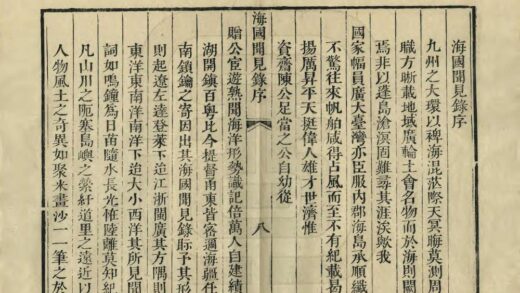 海國聞見錄序
九州之大環以裨海混茫際天冥晦莫測周
職方晰載地域廣輪土會名物而於海則闕
焉非以蓬島滄溟固難尋其涯涘歟我
國家幅員廣大臺灣亦臣服內郡海島承順纖
不驚往來帆舶咸得占風而至不有紀載曷
揚厲昇平天挺偉人雄才世濟惟
資齋陳公足當之公自幼從
海國聞見錄序 八
贈公宦遊熟聞海洋形勢識記信萬人自建績
湖開鎮百粵比今提督甬東皆密邇海疆任
南鎖鑰之寄因出其海國聞見錄眎予其形
則起遼左達登萊下迨江浙閩廣其方隅則
東洋東南洋南洋下迨大小西洋其所見聞
詞如鳴鐘爲日苗隨水長光怪陸離莫知紀
凡山川之阨塞島嶼之縈紆道里之遠近以
人物風土之奇異如聚米畫沙一一筆之於